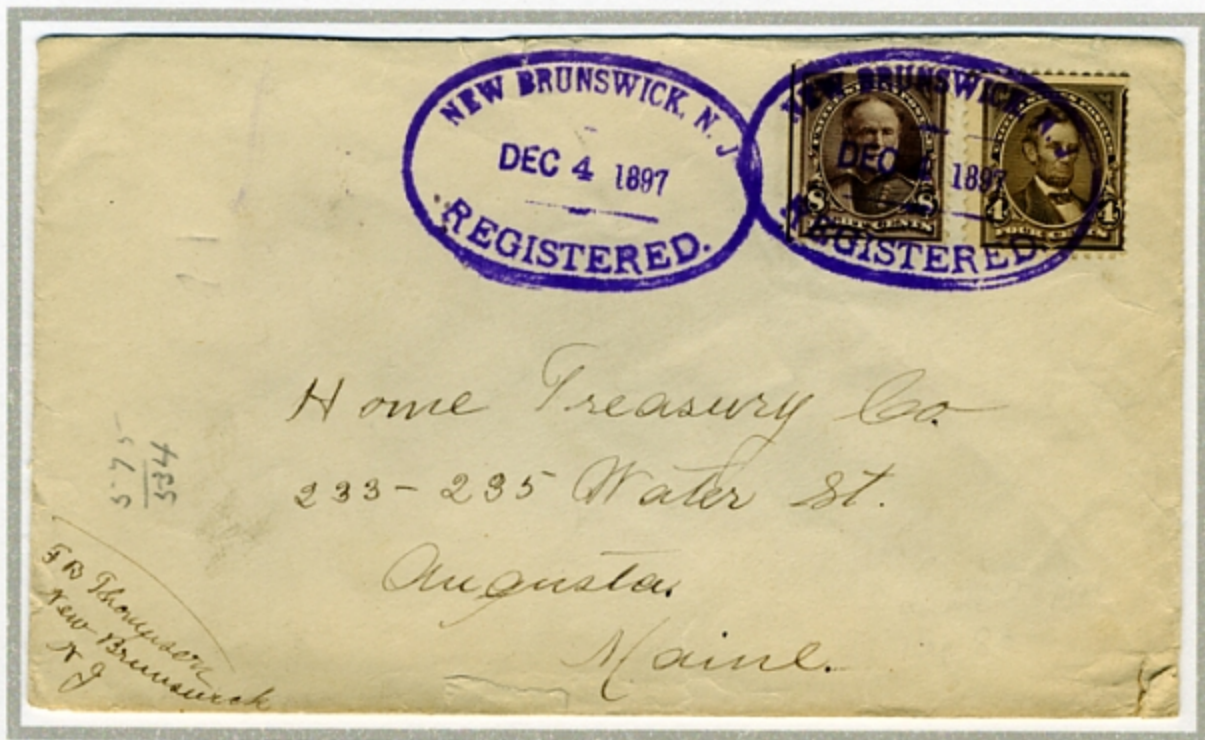 NEW BRUNSWICK, N. J.
DEC 4 1897
REGISTERED.
NEW BRUNSWICK
DEC 4 1897
REGISTERED.
8 8
4 4
Home Treasury Co.
233-235 Water St.
Augusta.
Maine.
575
534
F B Thompson
New Brunswick
N J